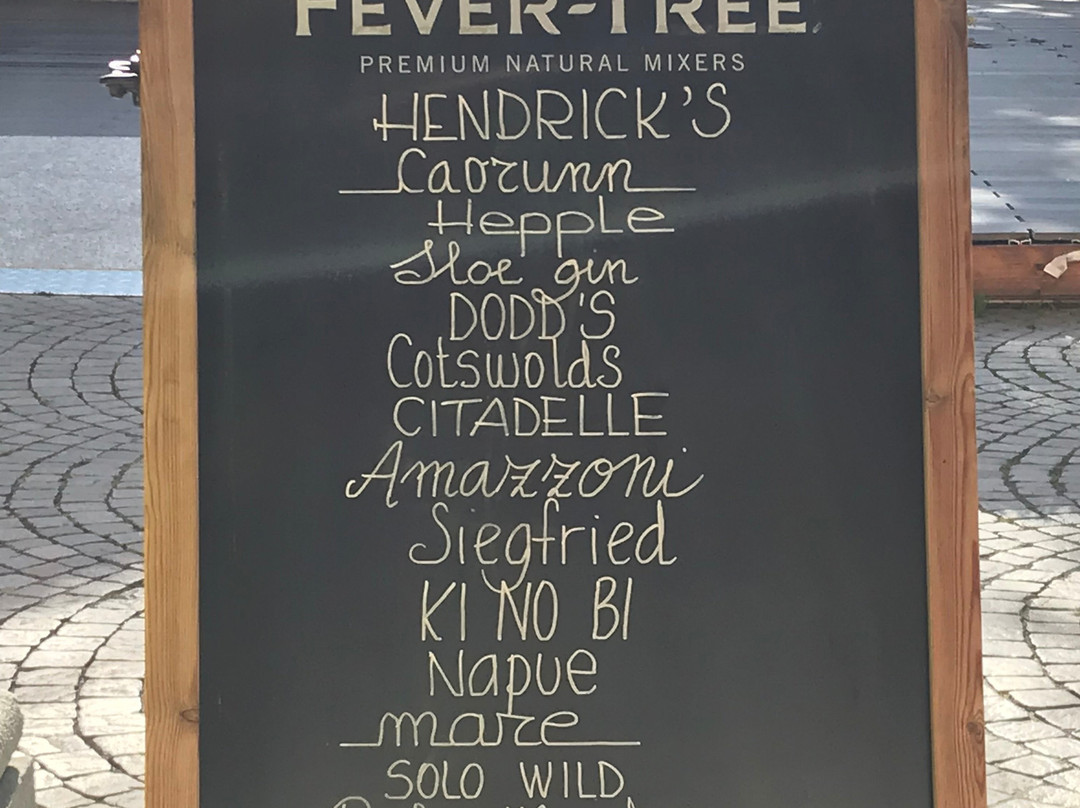 FEVER-TREE
PREMIUM NATURAL MIXERS
HENDRICK'S
Caorunn
Hepple
Sloe gin
DODD'S
Cotswolds
CITADELLE
Amazzoni
Siegfried
KI NO BI
Napue
mare
SOLO WILD